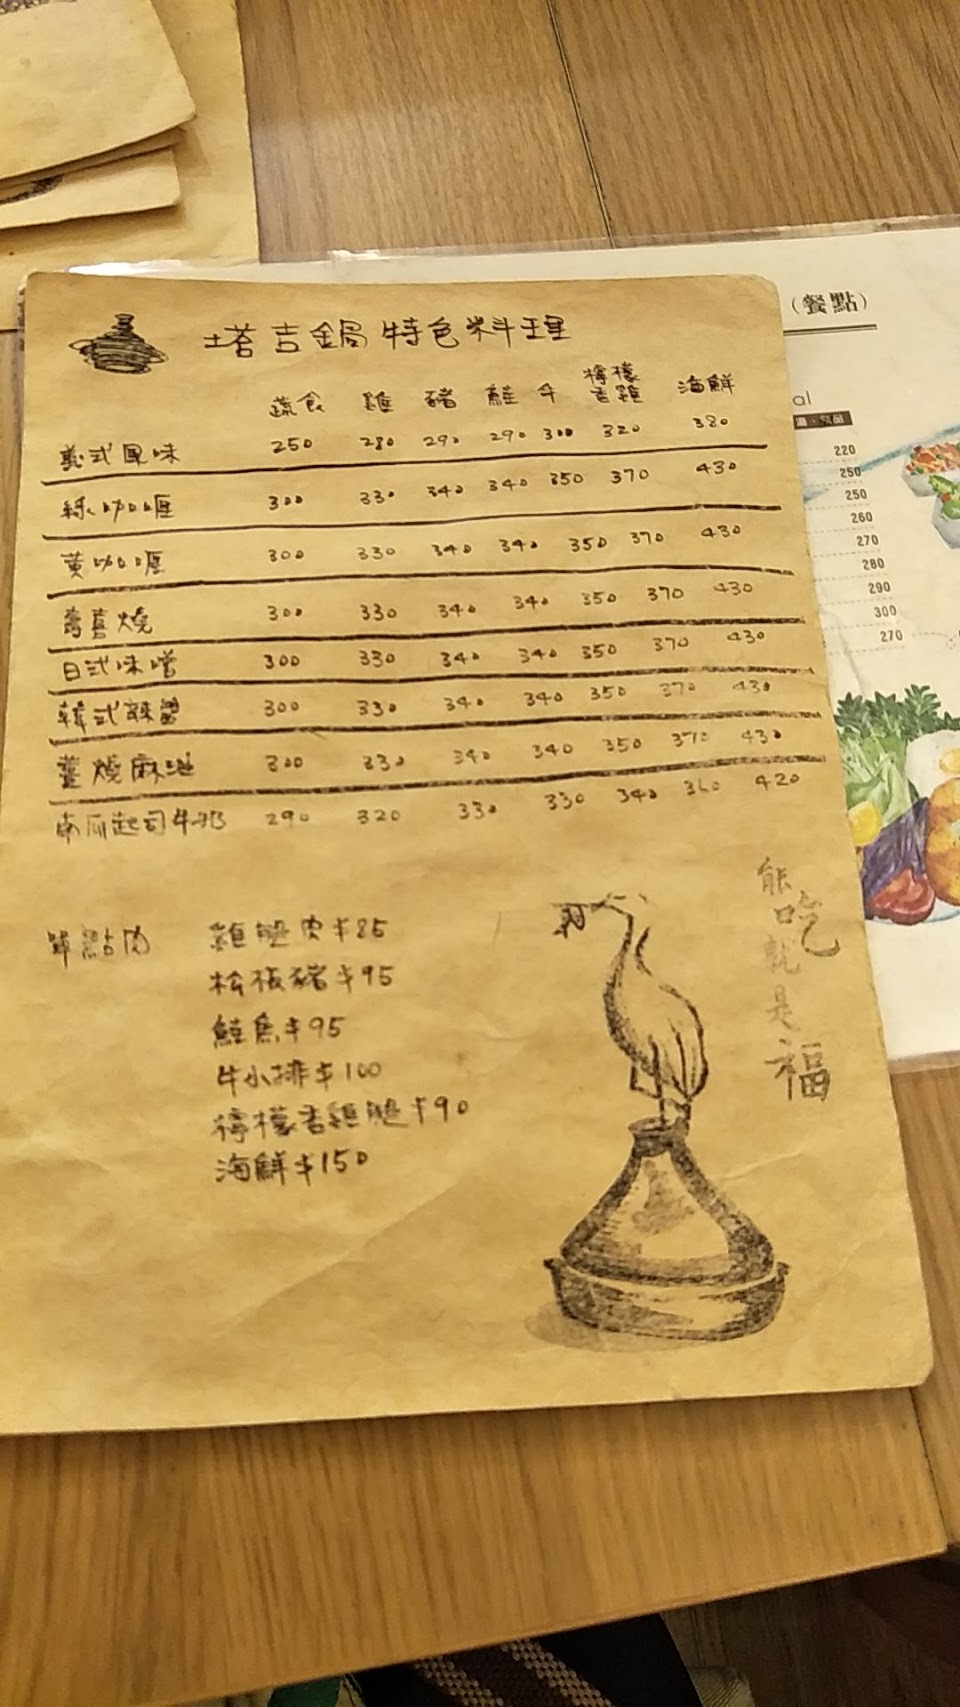 塔吉鍋特色料理
蔬食 雞 豬 鮭 牛 檸檬香雞 海鮮
義式風味 250 280 290 290 300 320 380
綠咖哩 300 330 340 340 350 370 430
黃咖哩 300 330 340 340 350 370 430
壽喜燒 300 330 340 340 350 370 430
日式味噌 300 330 340 340 350 370 430
韓式辣醬 300 330 340 340 350 370 430
薑燒麻油 300 330 340 340 350 370 430
南瓜起司牛奶 290 320 330 330 340 360 420
單點肉 雞腿肉$85
松板豬$95
鮭魚$95
牛小排$100
檸檬香雞腿$90
海鮮$150
能吃就是福
(餐點)
al
220
250
250
260
270
280
290
300
270